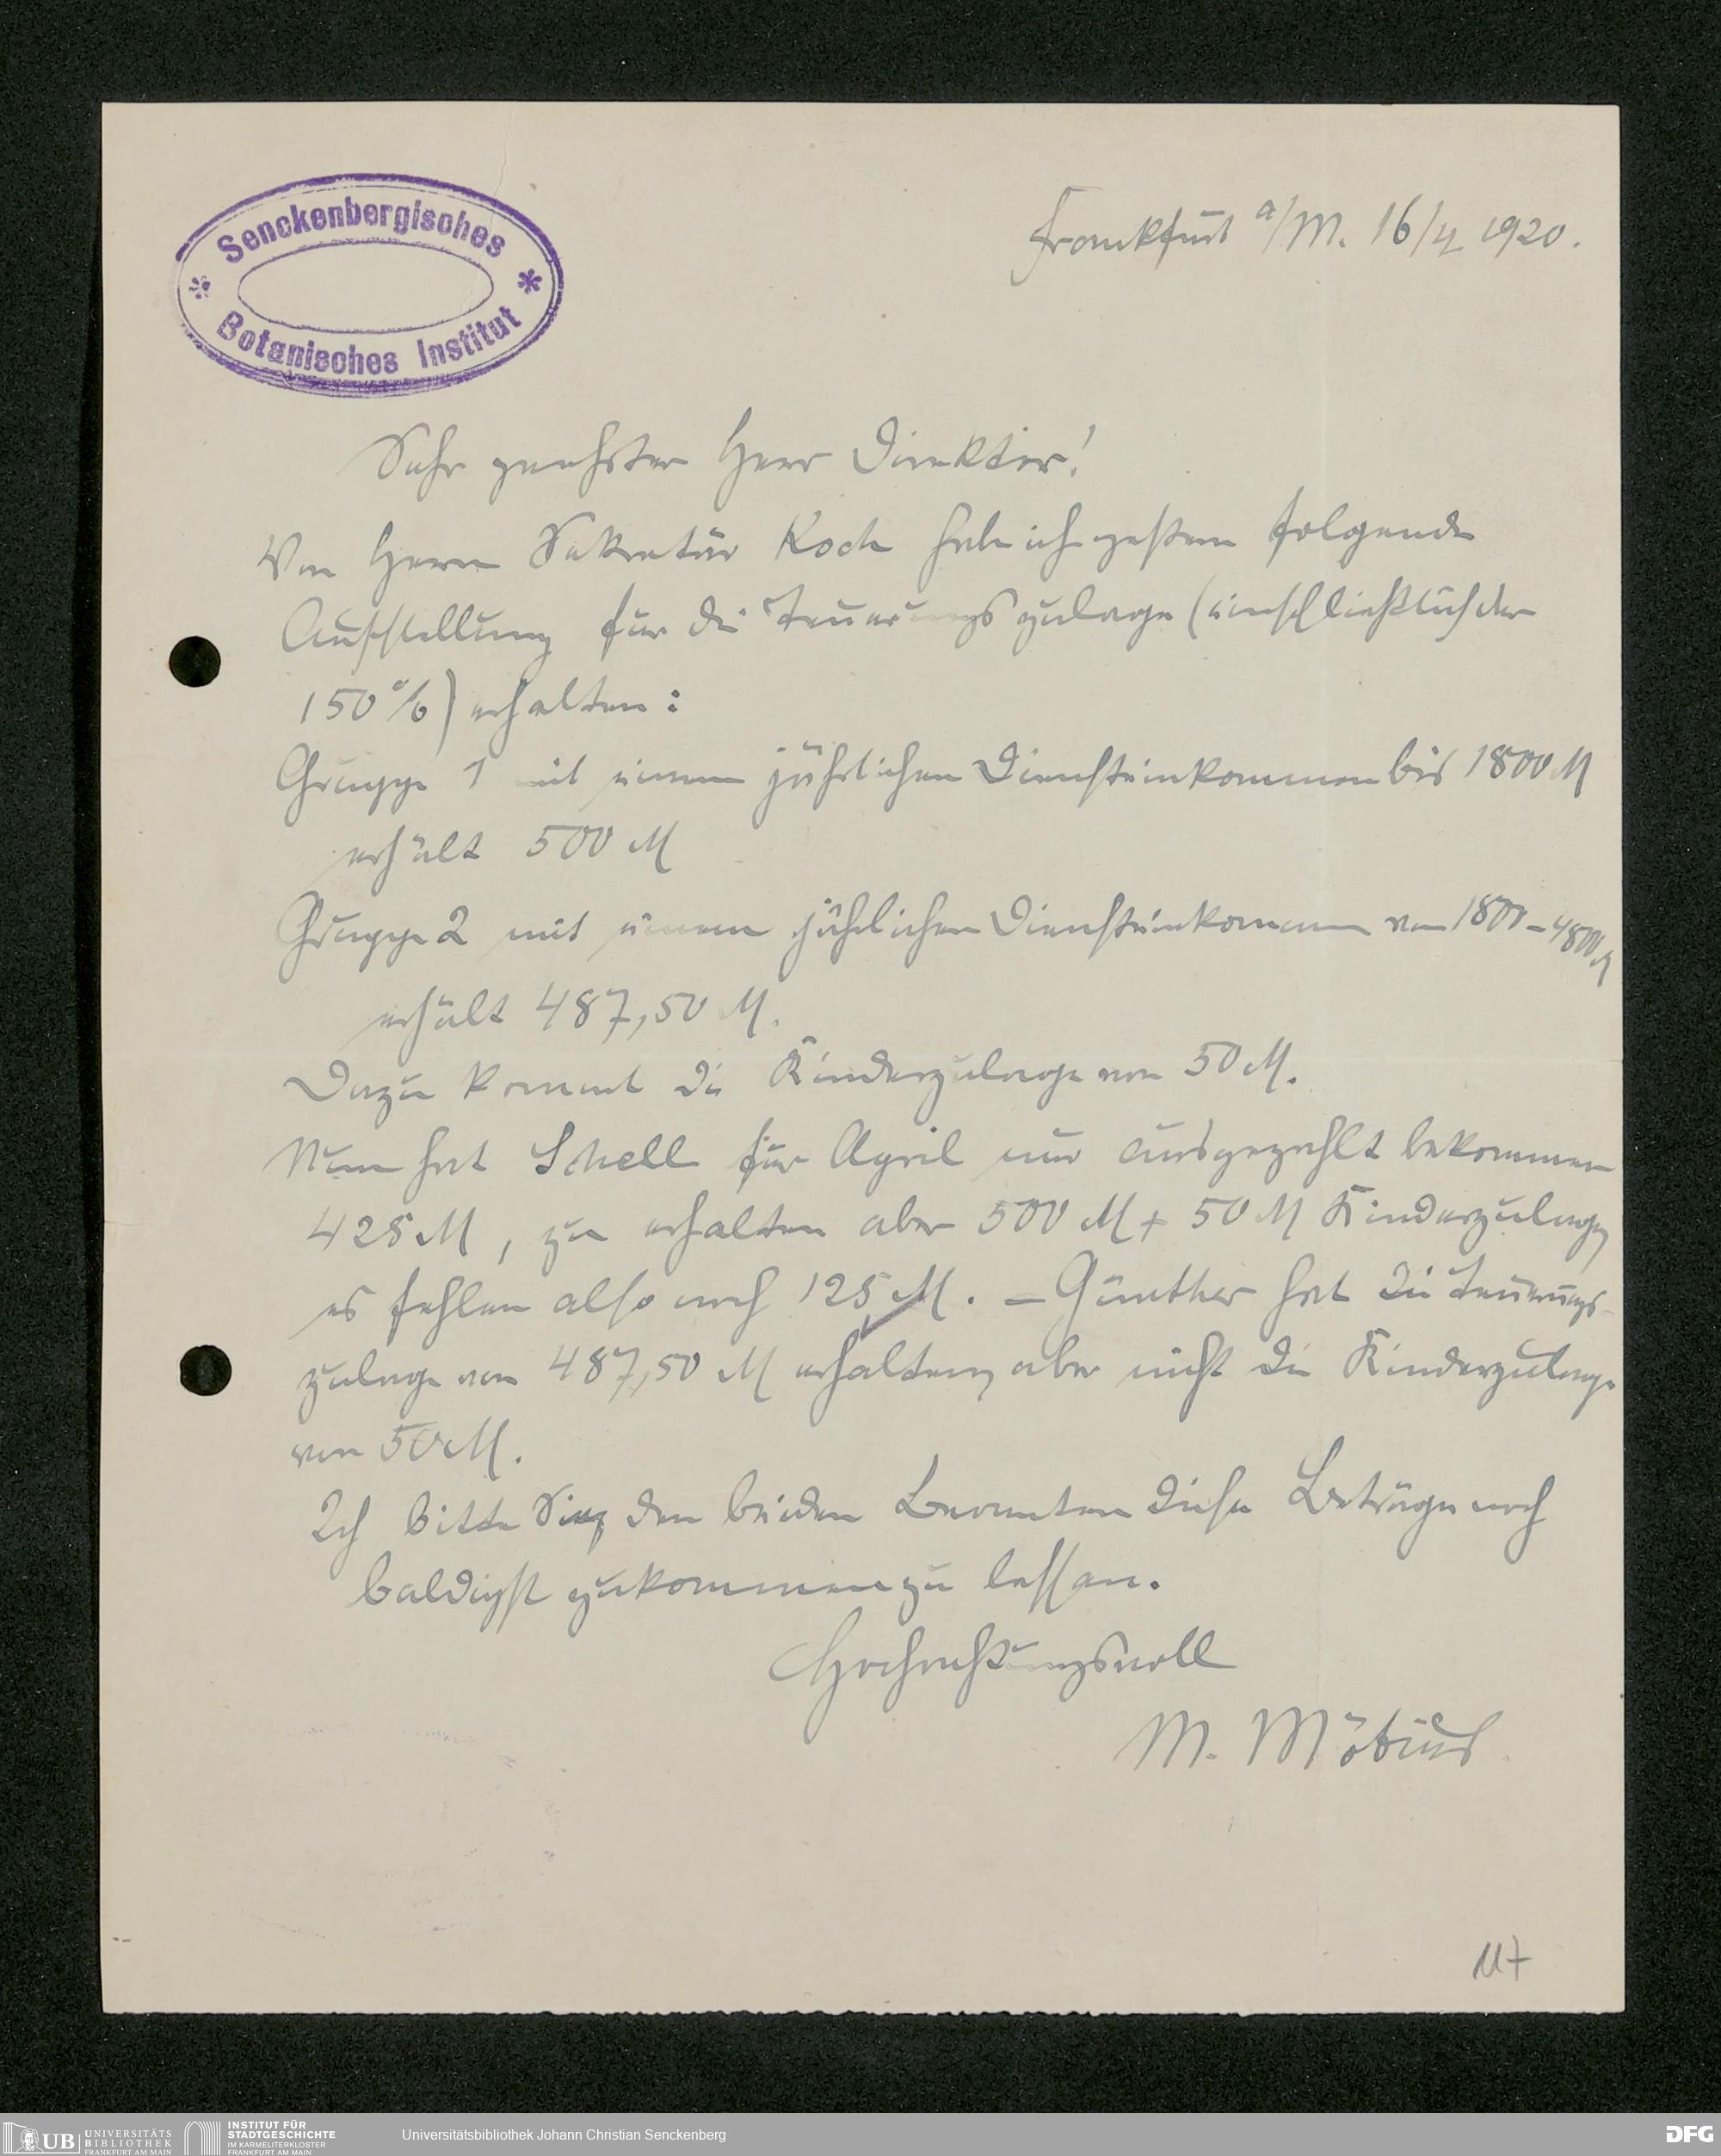 Senckenbergisches
Botanisches Institut
Frankfurt a/M. 16/4 1920.
Sehr geehrter Herr Direktor!
Von Herrn Sekretär Koch habe ich gestern folgende
Aufstellung für die Teuerungszulage (einschließlich der
150%) erhalten:
Gruppe 1 mit einem jährlichen Diensteinkommen bis 1800 M
erhält 500 M
Gruppe 2 mit einem jährlichen Diensteinkommen von 1800 - 4800 M
erhält 487,50 M.
Dazu kommt die Kinderzulage von 50 M.
Nun hat Schell für April nur ausgezahlt bekommen
425 M, zu erhalten aber 500 M + 50 M Kinderzulage,
es fehlen also noch 125 M. - Günther hat die Teuerungs-
zulage von 487,50 M erhalten, aber nicht die Kinderzulage
von 50 M.
Ich bitte Sie, den beiden Beamten diese Beträge noch
baldigst zukommen zu lassen.
Hochachtungsvoll
M. Möbius.
UB UNIVERSITÄTS
BIBLIOTHEK
FRANKFURT AM MAIN
INSTITUT FÜR
STADTGESCHICHTE
IM KARMELITERKLOSTER
FRANKFURT AM MAIN
Universitätsbibliothek Johann Christian Senckenberg
DFG